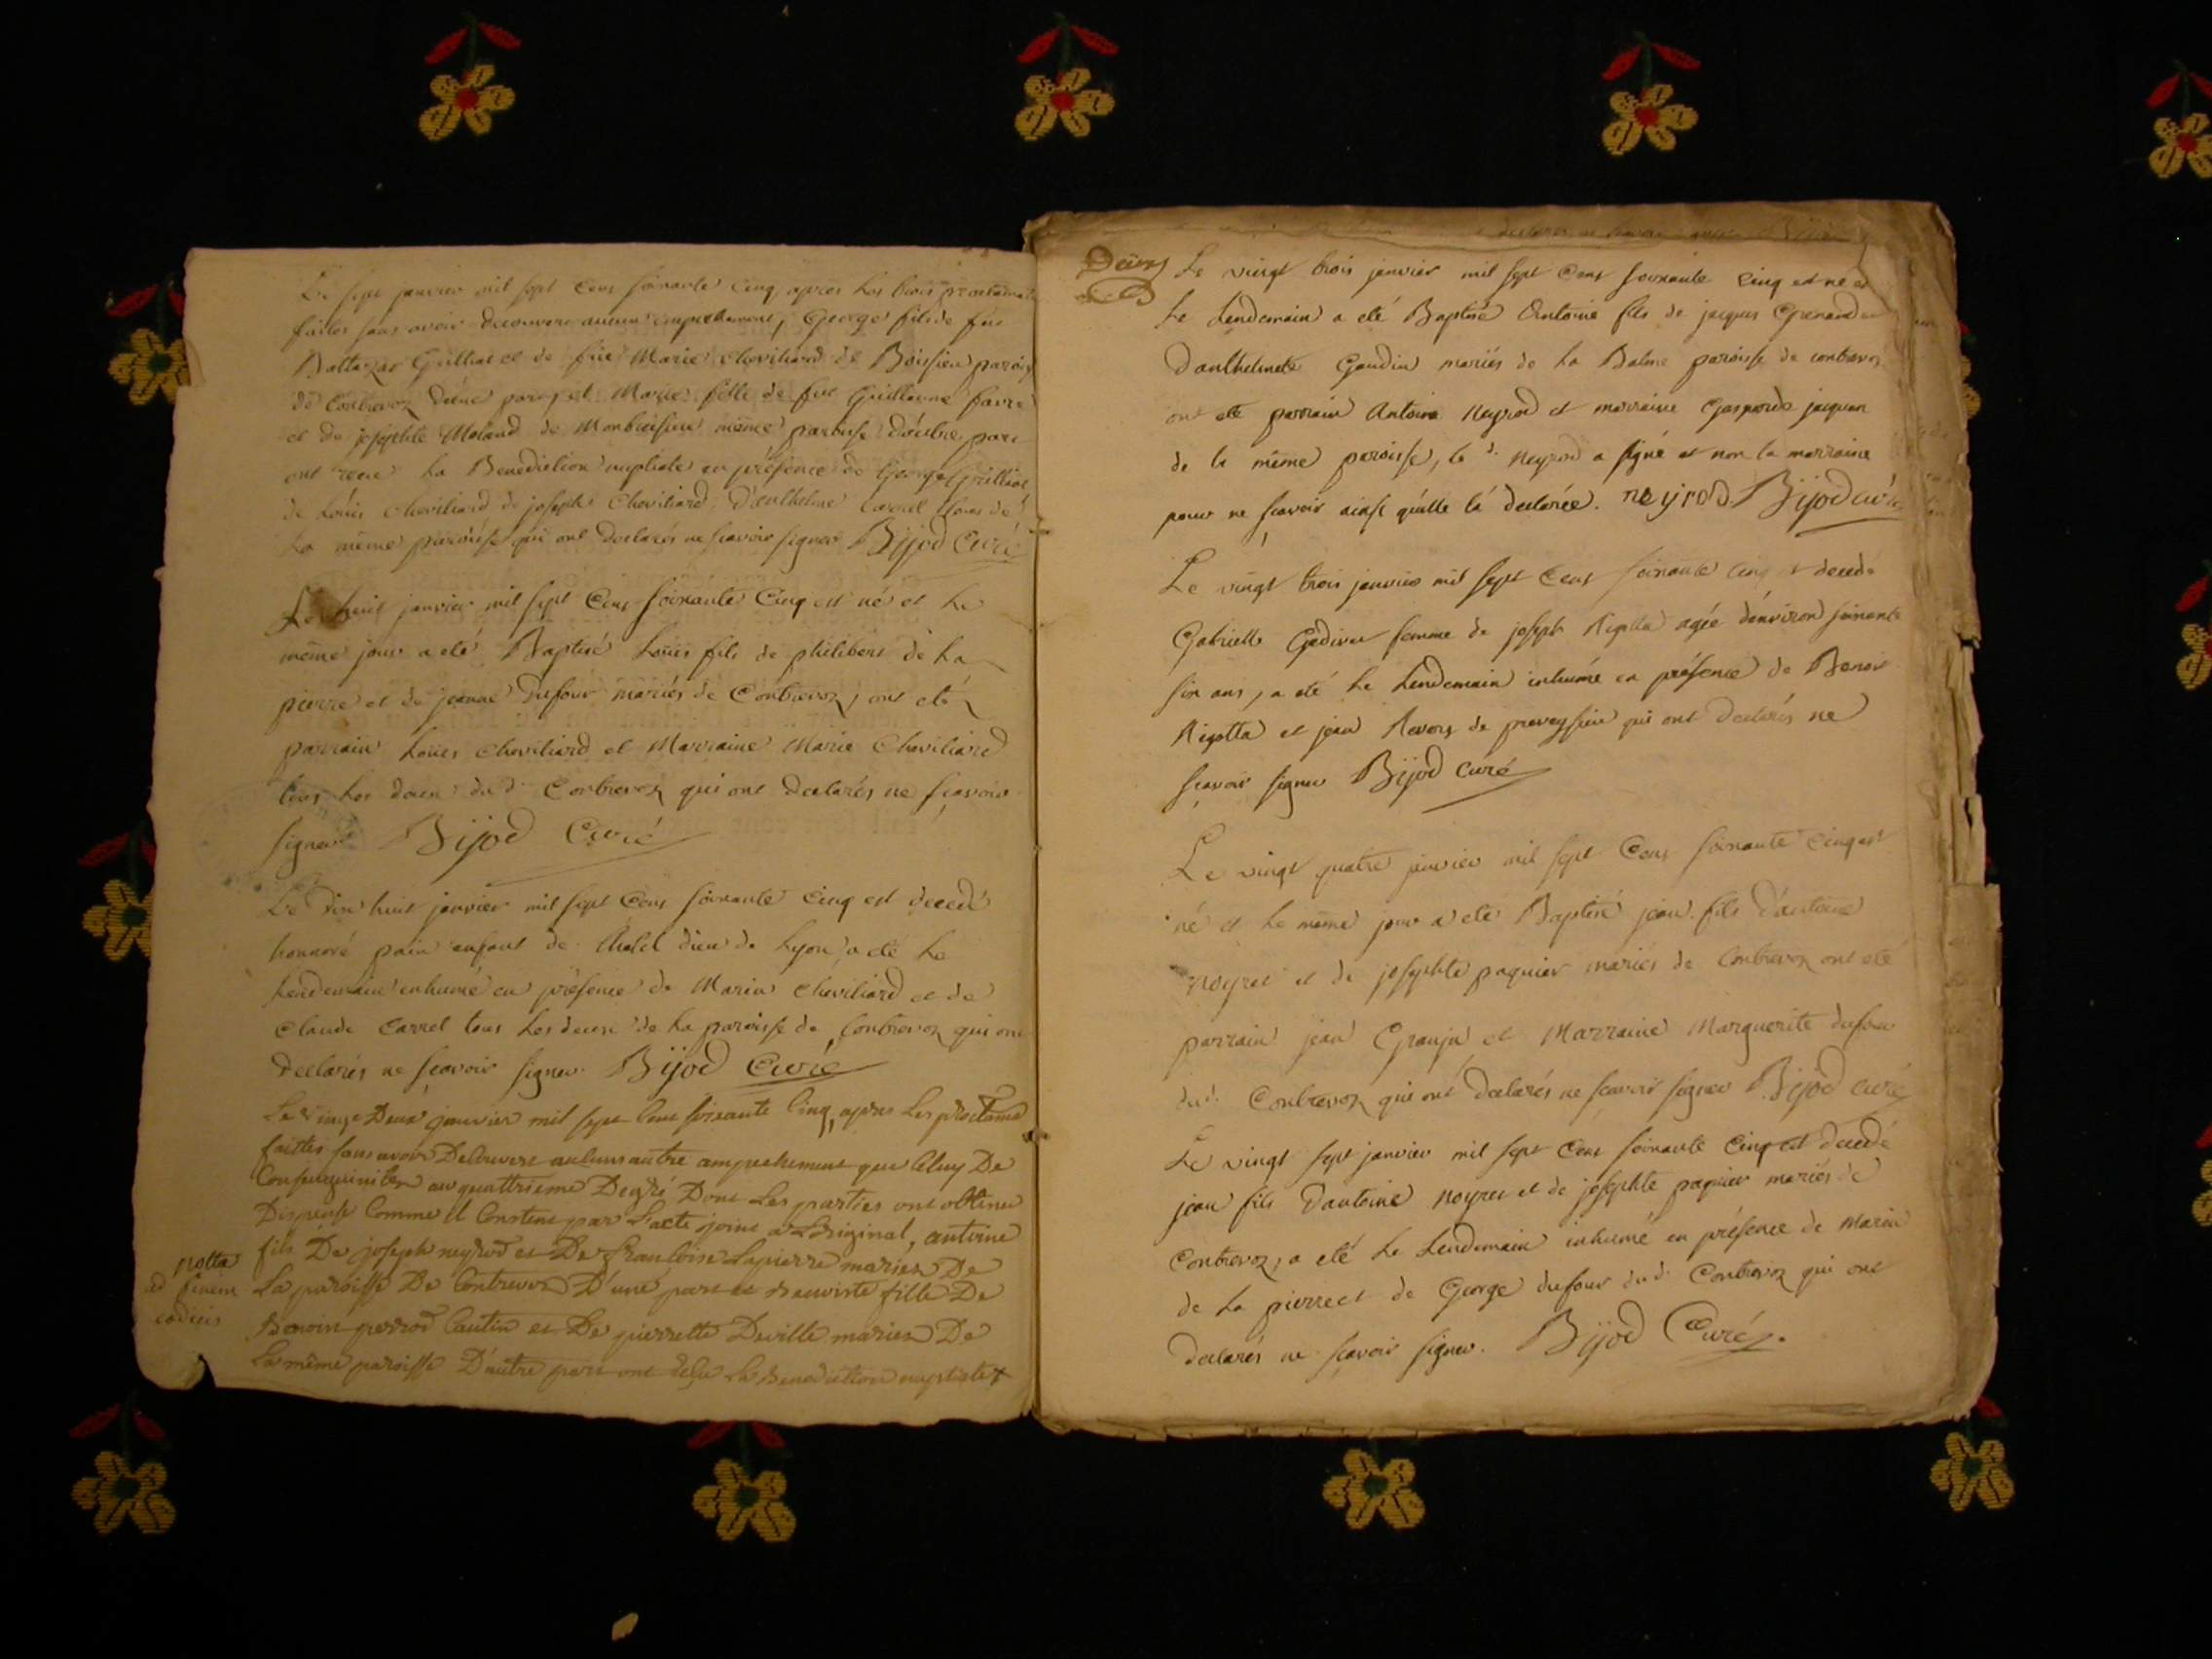 Le sept janvier mil sept Cens soixante Cinq, apres les trois proclamat
faites sans avoir decouvert aucun empechement, George fils de feu
Baltazar Guilliot et de feüe Marie Cheviliard de Boissieu parois
de Contrevoz d'une part, et Marie fille de feu Guillaume favre
et de josephte Moland de Montbreisieu même paroisse d'autre part
ont recu la Benediction nuptiale en présence de George Guilliot
de Loüis Cheviliard de joseph Cheviliard, d'anthelme Carrel tous de
la même paroisse qui ont declarés ne scavoir signer Bijod Curé
Le huit janvier mil sept Cens soixante Cinq est né et le
même jour a eté Baptisé Loüis fils de philibert de La
pierre et de jeanne Dufour mariés de Contrevoz, ont eté
parrain Loüis Cheviliard et Marraine Marie Cheviliard
tous les deux du d. Contrevoz qui ont declarés ne sçavoir
signer Bijod Curé
Le dix huit janvier mil sept Cens soixante Cinq est decedé
honnoré paix enfant de l'hotel dieu de Lyon, a eté le
Lendemain inhumé en présence de Marin Cheviliard et de
Claude Carrel tous les deux de la paroisse de Contrevoz qui ont
declarés ne scavoir signer. Bijod Curé
Le vingt Deux janvier mil sept Cens soixante Cinq, apres Les proclama
faittes sans avoir Decouvert aucuns autre ampechement que Celuy De
Consanguinité au quattrieme Degré Dont Les parties ont obtenu
Dispense Comme il Constent par L'acte joint a L'original, antoine
fils De joseph neyrod et De francoise Lapierre mariez De
notta
ad finem
codicis
La paroisse De Contrevoz D'une part et Benoiste fille De
Benoit perrod Cautin et De pierrette Deville mariez De
La même paroisse D'autre part ont reçu La Benediction nuptiale +
Deux
Le vingt trois janvier mil sept Cens soixante Cinq est né et
le Lendemain a eté Baptisé Antoine fils de jacques Grenand et
d'anthelmete Gaudin mariés de la Balme paroisse de contrevoz
ont eté parrain Antoine Neyrod et marraine Gasparde jacquan
de la même paroisse, le d. Neyrod a signé et non la marraine
pour ne scavoir ainsi qu'elle l'a declarée. neyrod Bijod curé
Le vingt trois janvier mil sept Cens soixante Cinq est decedé
Gabrielle Godivet femme de joseph Rigotta agée d'environ soixante
six ans, a eté le Lendemain inhumé en présence de Benoit
Rigotta et jean Revorg de preveyssieu qui ont declarés ne
scavoir signer Bijod Curé
Le vingt quatre janvier mil sept Cens soixante Cinq est
né et le même jour a eté Baptisé jean fils d'antoine
noyret et de josephte paquier mariés de Contrevoz ont eté
parrain jean Granju et Marraine Marguerite dufour
du d. Contrevoz qui ont declarés ne scavoir signer Bijod Curé
Le vingt sept janvier mil sept Cens soixante Cinq est decedé
jean fils d'antoine noyret et de josephte paquier mariés de
Contrevoz, a eté le Lendemain inhumé en présence de Marin
de La pierre et de George dufour du d. Contrevoz qui ont
declarés ne scavoir signer. Bijod Curé.